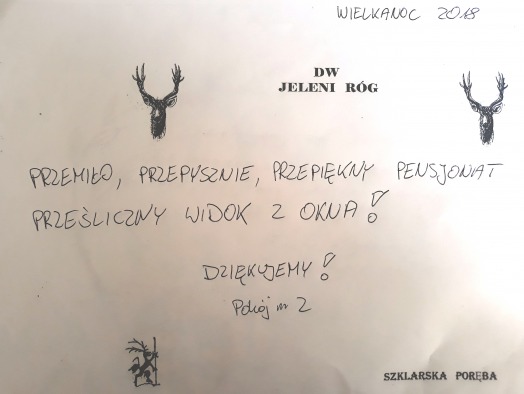 WIELKANOC 2018
DW
JELENI RÓG
PRZEMIŁO, PRZEPYSZNIE, PRZEPIĘKNY PENSJONAT
PRZEŚLICZNY WIDOK Z OKNA!
DZIĘKUJEMY!
Pokój nr 2
SZKLARSKA PORĘBA